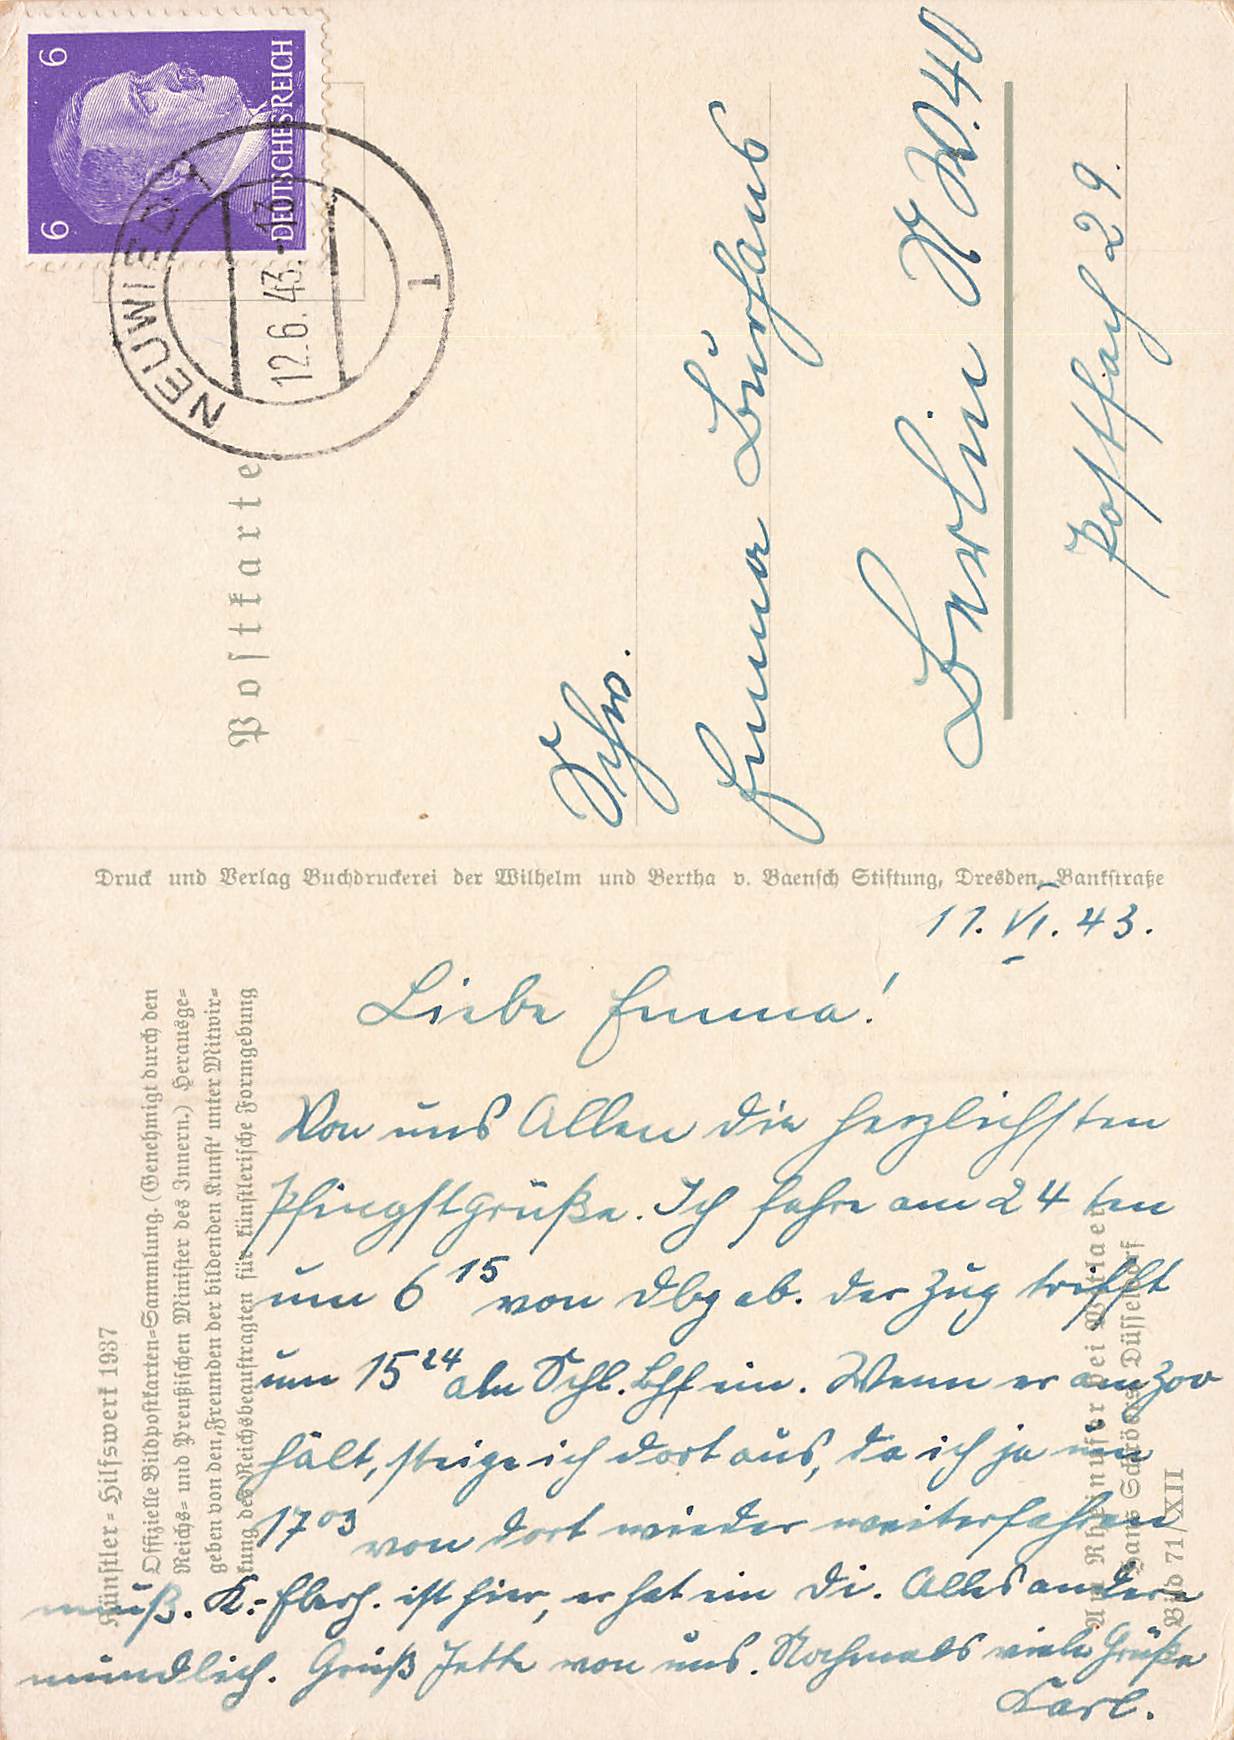 6 6
DEUTSCHES REICH
NEUWIED
12.6.43.-13
1
Postkarte
Schw.
Emma Burhans
Berlin N.W.40
Postfach 29.
Druck und Verlag Buchdruckerei der Wilhelm und Bertha v. Baensch Stiftung, Dresden, Bankstraße
Künstler-Hilfswerk 1937
Offizielle Bildpostkarten-Sammlung. (Genehmigt durch den
Reichs- und Preußischen Minister des Innern.) Herausge-
geben von den „Freunden der bildenden Kunst“ unter Mitwir-
kung des Reichsbeauftragten für künstlerische Formgebung
11. VI. 43.
Liebe Emma!
Von uns Allen die herzlichsten
Pfingstgrüße. Ich fahre am 24ten
um 6 15 von Dbg ab. Der Zug trifft
um 15 24 am Schl. Bhf ein. Wenn er am Zoo
hält, steige ich dort aus, da ich ja um
17 03 von dort wieder weiterfahren
muß. K.- ist hier, er hat ein Di. Alles andere
mündlich. Gruß Jette von uns. Nochmals viele Grüße
Karl.
Am Rheinufer bei Wittlaer
Hans Schröers, Düsseldorf
Bild 71/XII